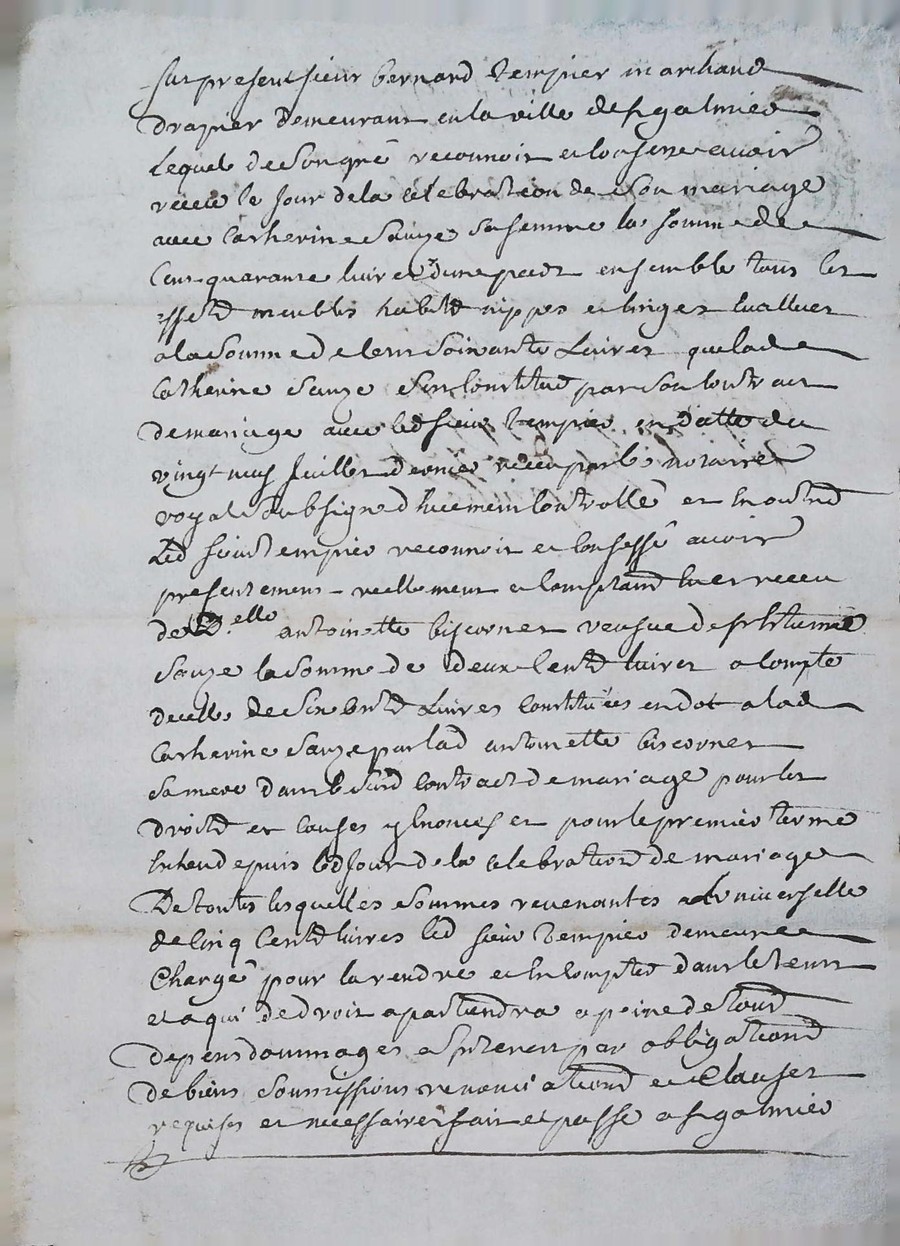 fut present sieur bernard tempier marchand
drapier demeurant en la ville de st galmier
Lequel de son gré reconnoit et confesse avoir
receu le jour de la celebration de son mariage
avec Catherine Sauze sa femme la somme de
Cent quarante livres d'une part ensemble tous les
effetd meubles habitd nippes et linges Evalluez
a la somme de Cent soixante Livres que lad
Catherine Sauze s'est Constitué par son Contract
de mariage avec led sieur tempier en datte du
vingt neuf Juillet dernier receu par les notaires
royal soubsigne d'huement Controllé et En outre
Led sieur tempier reconnoit et Confesse avoir
presentement reellement et Comptand Eu et receu
de D.elle antoinette biscornet veufve de sr
Sauze la somme de deux Centd livres a Compte
de celle de six Centd Livres Constituées en dot a lad
Catherine Sauze par lad antoinette biscornet
sa mere dans le susd Contract de mariage pour les
droitd et Causes y Enoncés et pour le premier terme
Echeu depuis led Jour de la celebration de mariage
De toutes lesquelles sommes revenantes a L'universelle
de Cinq Centd livres led sieur tempier demeure
Chargé pour la rendre et En Compter dans le tems
et a qui de droit apartiendra a peine de toud
depens dommages et par obligationd
de biens soumissions renonciationd et Clauses
requises et necessaires fait et passé a st galmier